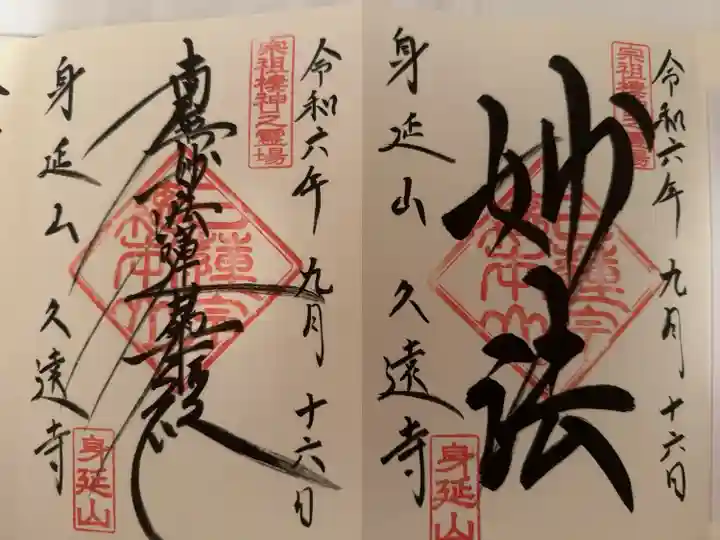 令和六年 九月 十六日
宗祖棲神之霊場
南無妙法蓮華経
身延山 久遠寺
身延山
令和六年 九月 十六日
宗祖棲神之霊場
妙法
身延山 久遠寺
身延山